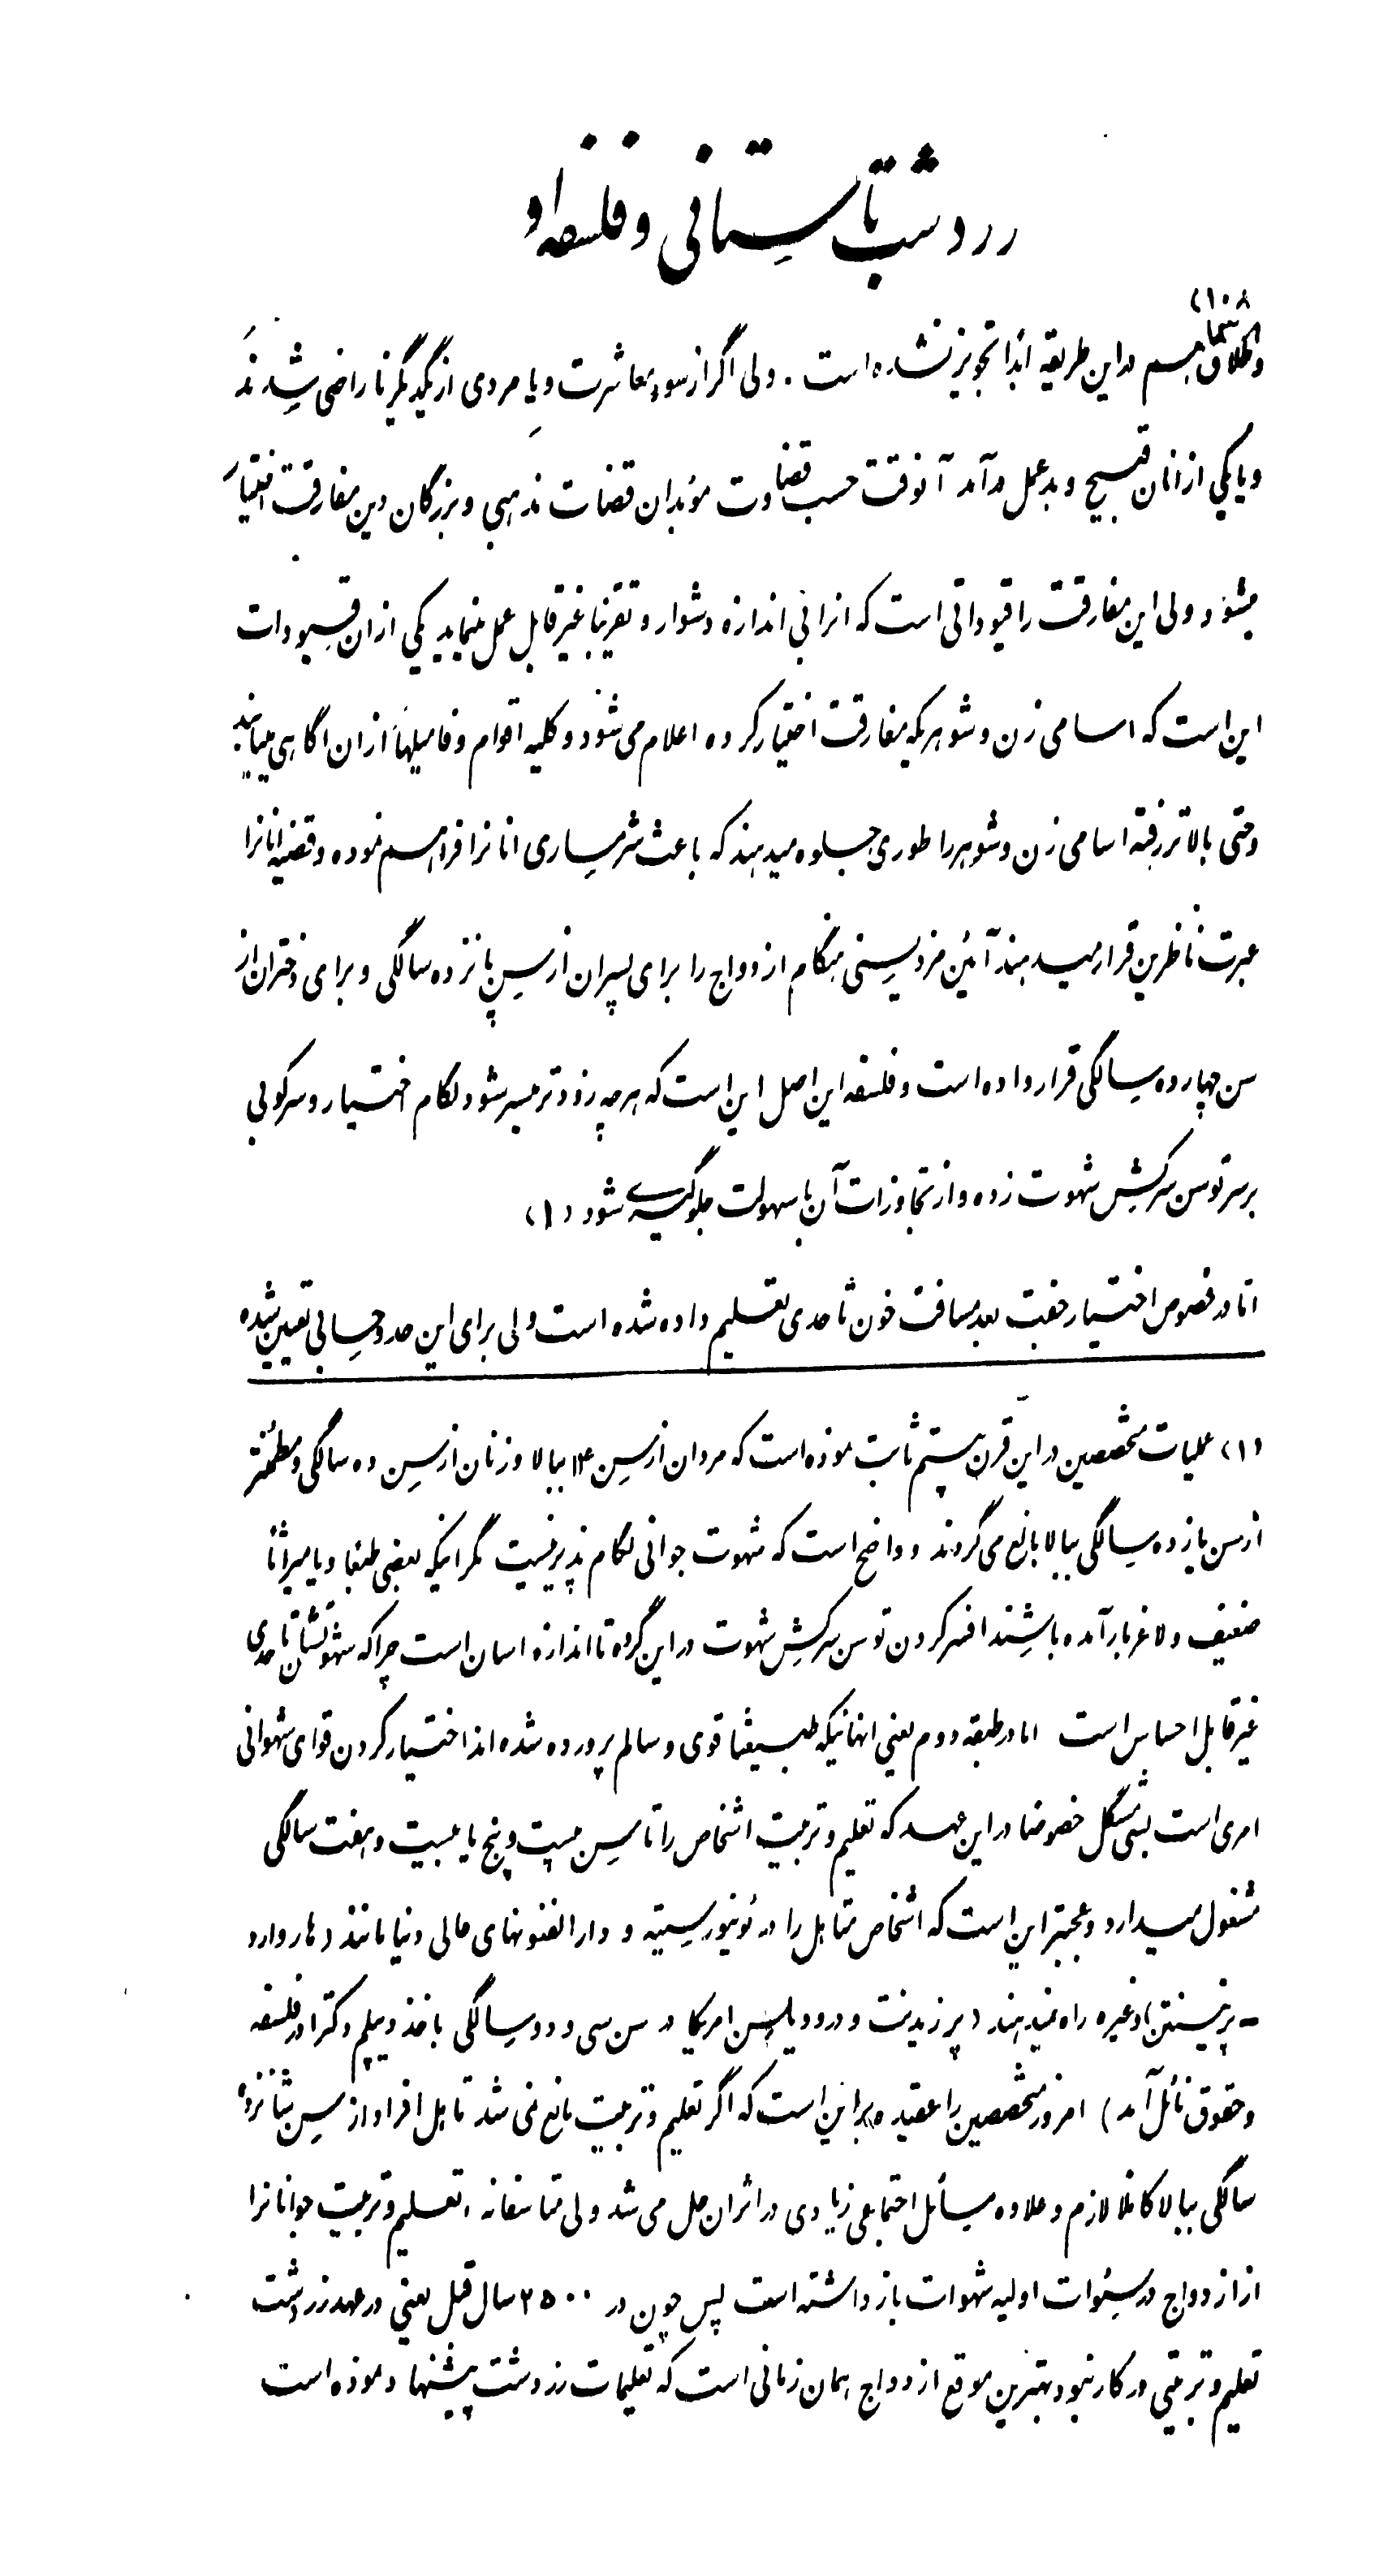 زردشت باستانی و فلسفه او
(۱۰۸
و طلاق هم در این طریقه ابداً تجویز نشده است . ولی اگر از سوء معاشرت و یا مردی از یکدیگر ناراضی شدند
و یا یکی از انان قبیح و بد عمل درآمد آنوقت حسب قضاوت مؤبدان قضات مذهبی و بزرگان دین مفارقت اختیار
میشود ولی این مفارقت را قیوداتی است که انرا بی اندازه دشوار و تقریباً غیرقابل عمل مینماید یکی از ان قیودات
این است که اسامی زن و شوهریکه مفارقت اختیار کرده اعلام می شود و کلیه اقوام و فامیلها از ان اگاهی مییابند
و حتی بالاتر رفته اسامی زن و شوهر را طوری جلوه میدهند که باعث شرمساری انانرا فراهم نموده و قضیه انانرا
عبرت ناظرین قرار میدهند آئین مزدیسنی هنگام ازدواج را برای پسران از سن پانزده سالگی و برای دختران از
سن چهارده سالگی قرار داده است و فلسفه این اصل این است که هر چه زودتر میسر شود لگام اختیار و سرکوبی
بر سر توسن سرکش شهوت زده و از تجاوزات آن با سهولت جلوگیری شود (۱)
اما در خصوص اختیار جفت بعد مسافت خون تا حدی تعلیم داده شده است ولی برای این حد و حسابی تعیین نشده
(۱) عملیات متخصصین در این قرن بیستم ثابت نموده است که مردان از سن ۱۴ ببالا و زنان از سن ده سالگی و مطمئنتر
از سن یازده سالگی ببالا بالغ می گردند و واضح است که شهوت جوانی لگام پذیر نیست مگر اینکه بعضی طبعا و یا میراثا
ضعیف و لاغر بار آمده باشند افسر کردن توسن سرکش شهوت در این گروه تا اندازه اسان است چرا که شهوتشان تا حدی
غیرقابل احساس است اما در طبقه دوم یعنی انهائیکه طبیعتا قوی و سالم پرورده شده اند اختیار کردن قوای شهوانی
امری است بسی مشگل خصوصا در این عهد که تعلیم و تربیت اشخاص را تا سن بیست و پنج یا بیست و هفت سالگی
مشغول میدارد و عجبتر این است که اشخاص متاهل را در یونیورسیته و دارالفنونهای عالی دنیا مانند (هاروارد
- پرنیستن) و غیره راه نمیدهند (پرزیدنت وودرو ویلسن امریکا در سن سی و دو سالگی باخذ دیپلم دکترا در فلسفه
و حقوق نائل آمد) امروز متخصصین را عقیده بر این است که اگر تعلیم و تربیت مانع نمی شد تاهل افراد از سن شانزده
سالگی ببالا کاملا لازم و علاوه مسائل اجتماعی زیادی در اثر ان حل می شد ولی متاسفانه ، تعلیم و تربیت جوانانرا
از ازدواج در سنوات اولیه شهوات باز داشته است پس چون در ۲۵۰۰ سال قبل یعنی در عهد زردشت
تعلیم و تربیتی در کار نبود بهترین موقع ازدواج همان زمانی است که تعلیمات زردشت پیشنهاد نموده است